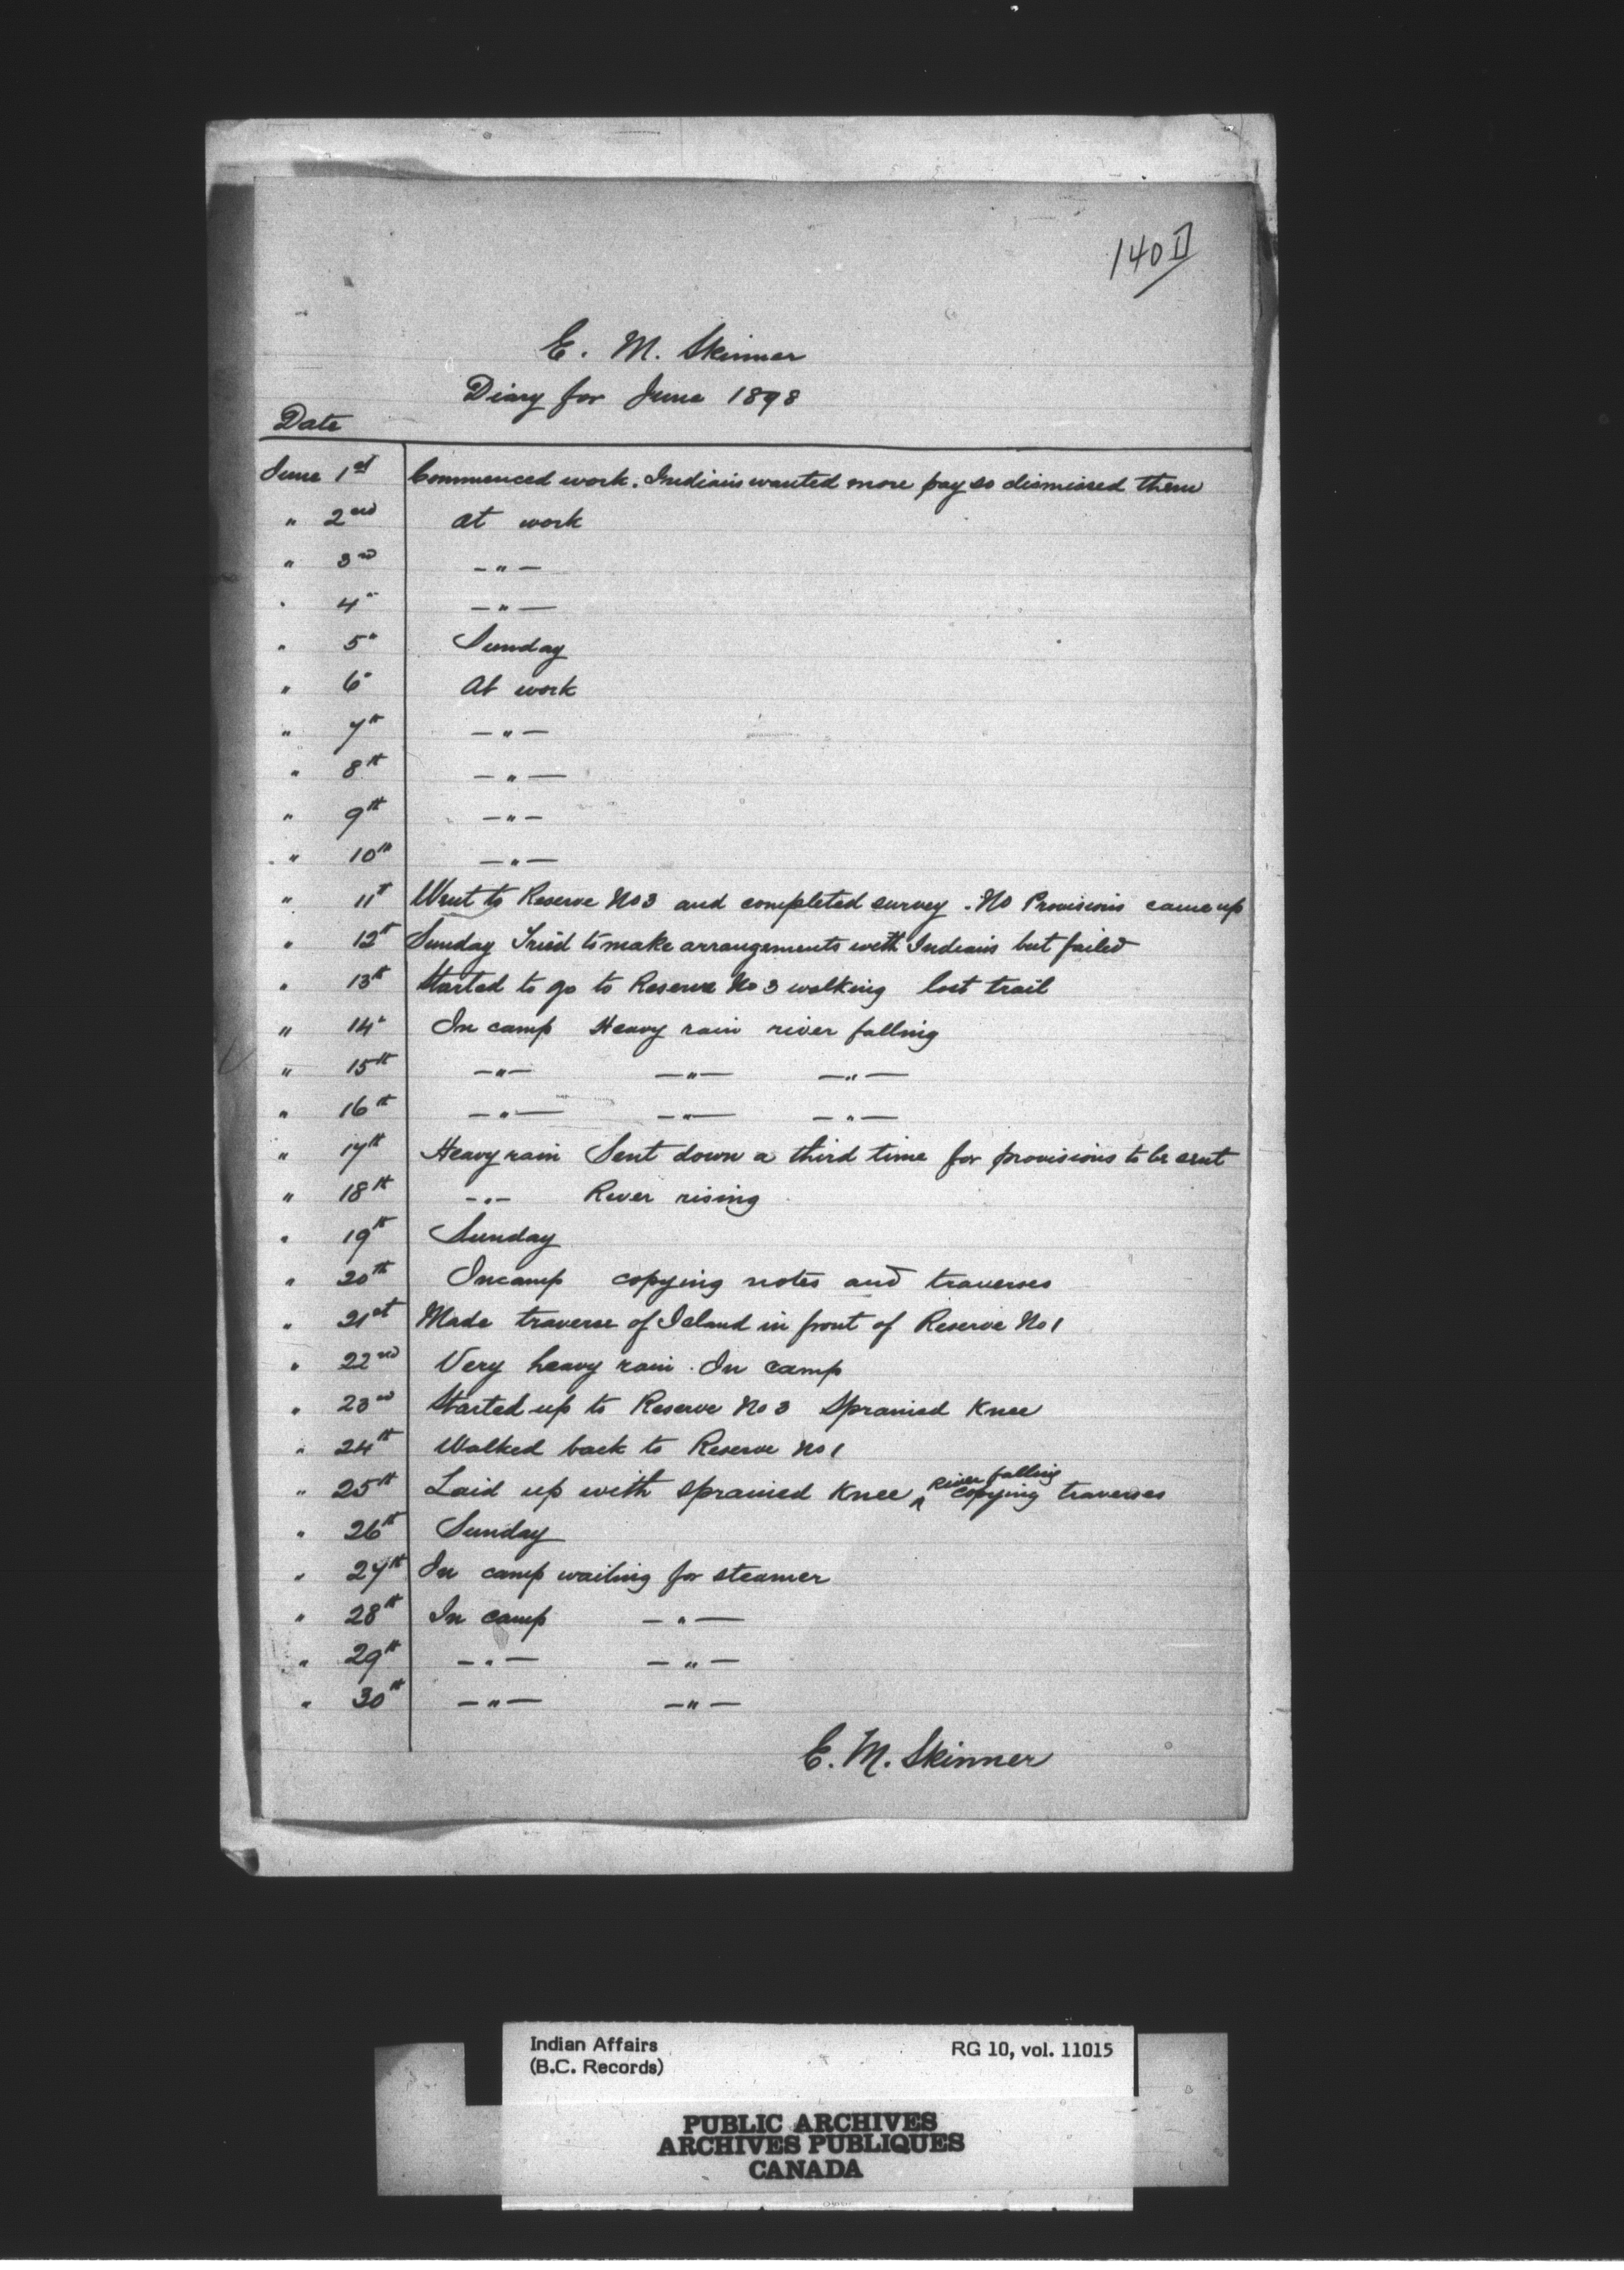 140 II
E. M. Skinner
Diary for June 1898
Date
June 1st Commenced work. Indians wanted more pay so dismissed them
" 2nd at work
" 3rd — " —
" 4" — " —
" 5" Sunday
" 6" At work
" 7th — " —
" 8th — " —
" 9th — " —
" 10th — " —
" 11t Went to Reserve No 3 and completed survey. No Provisions came up
" 12t Sunday Tried to make arrangements with Indians but failed
" 13t Started to go to Reserve No 3 walking lost trail
" 14" In camp Heavy rain river falling
" 15th — " — — " — — " —
" 16th — " — — " — — " —
" 17th Heavy rain Sent down a third time for provisions to be sent
" 18th — " — River rising
" 19th Sunday
" 20th In camp copying notes and traverses
" 21st Made traverse of Island in front of Reserve No 1
" 22nd Very heavy rain. In camp
" 23rd Started up to Reserve No 3 Sprained Knee
" 24th Walked back to Reserve No 1
" 25th Laid up with sprained Knee ^ River falling copying traverses
" 26th Sunday
" 27th In camp waiting for steamer
" 28th In camp — " —
" 29th — " — — " —
" 30th — " — — " —
E. M. Skinner
Indian Affairs RG 10, vol. 11015
(B.C. Records)
PUBLIC ARCHIVES
ARCHIVES PUBLIQUES
CANADA